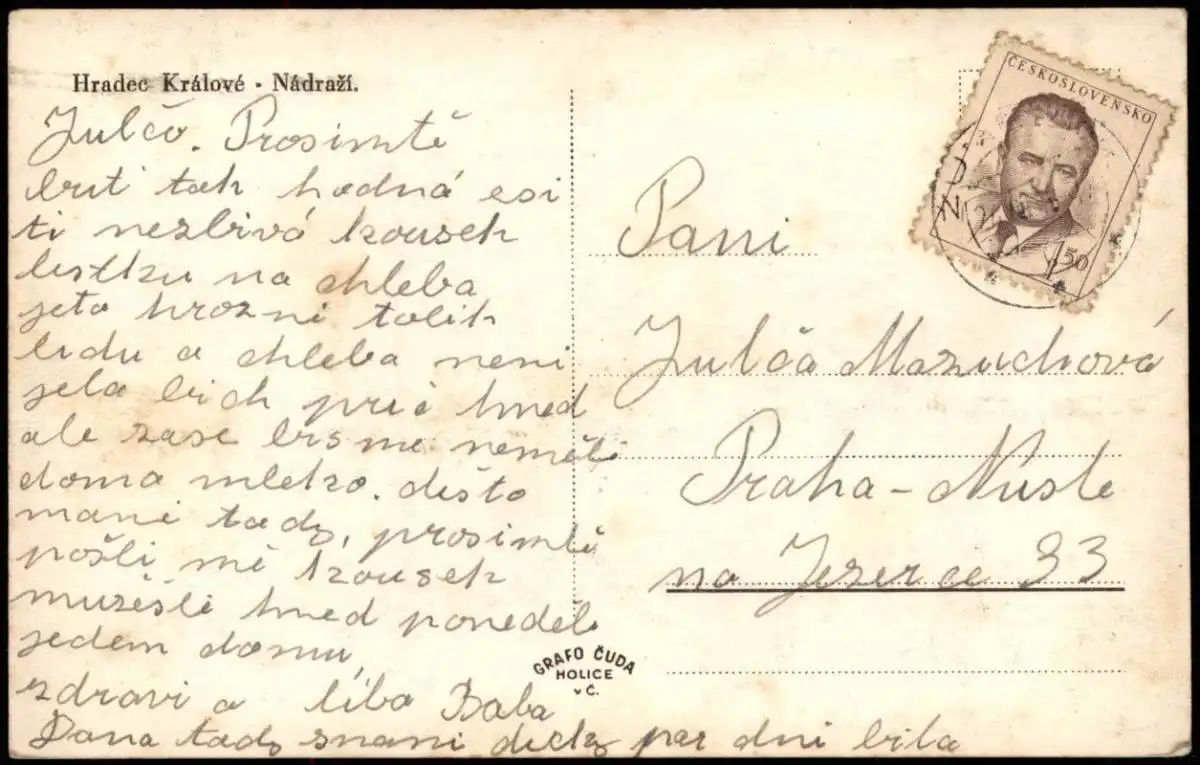 Hradec Králové - Nádraží.
Julčo. Prosimtě
buť tak hodná esi
ti nezbivá kousek
lístku na chleba
jeto hrozní tolik
lidu a chleba není
jela bich prič hned
ale zase bisme neměli
doma mleko. dišto
mani tady, prosimtě
pošli mě kousek
mužešli hned ponedeli
jedem domu,
zdravi a líba Baba
Dana tady snami dicky par dni bila
ČESKOSLOVENSKO
1 50
Pani
Julča Mazuchová
Praha - Nusle
na Jezerce 33
GRAFO ČUDA
HOLICE
v Č.